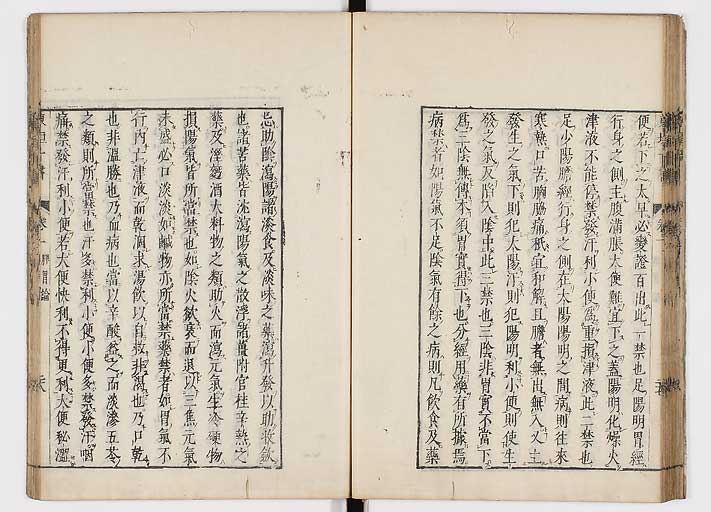 便若下之太早必變證百出此一禁也足陽明胃經
行身之前主腹滿脹大便難宜下之蓋陽明化燥火
津液不能停禁發汗利小便爲重損津液此二禁也
足少陽膽經行身之側在太陽陽明之間病則往來
寒熱口苦胸脇痛秖宜和解且膽者無出無入又主
發生之氣下則犯太陽汗則犯陽明利小便則使生
發之氣反陷入陰中此三禁也三陰非胃實不當下
爲三陰無傳本須胃實得下也分經用藥有所據焉
病禁者如陽氣不足陰氣有餘之病則凡飲食及藥
忌助陰瀉陽諸淡食及淡味之藥瀉升發以助收斂
也諸苦藥皆沈瀉陽氣之散浮諸薑附官桂辛熱之
藥及濕麪酒大料物之類助火而瀉元氣生冷硬物
損陽氣皆所當禁也如陰火欲衰而退以三焦元氣
未盛必口淡淡如鹹物亦所當禁藥禁者如胃氣不
行內亡津液而乾涸求湯飲以自救非渴也乃口乾
也非溫勝也乃血病也當以辛酸益之而淡滲五苓
之類則所當禁也汗多禁利小便小便多禁發汗咽
痛禁發汗利小便若大便快利不得更利大便秘澀
東垣十書
卷一
脾胃論